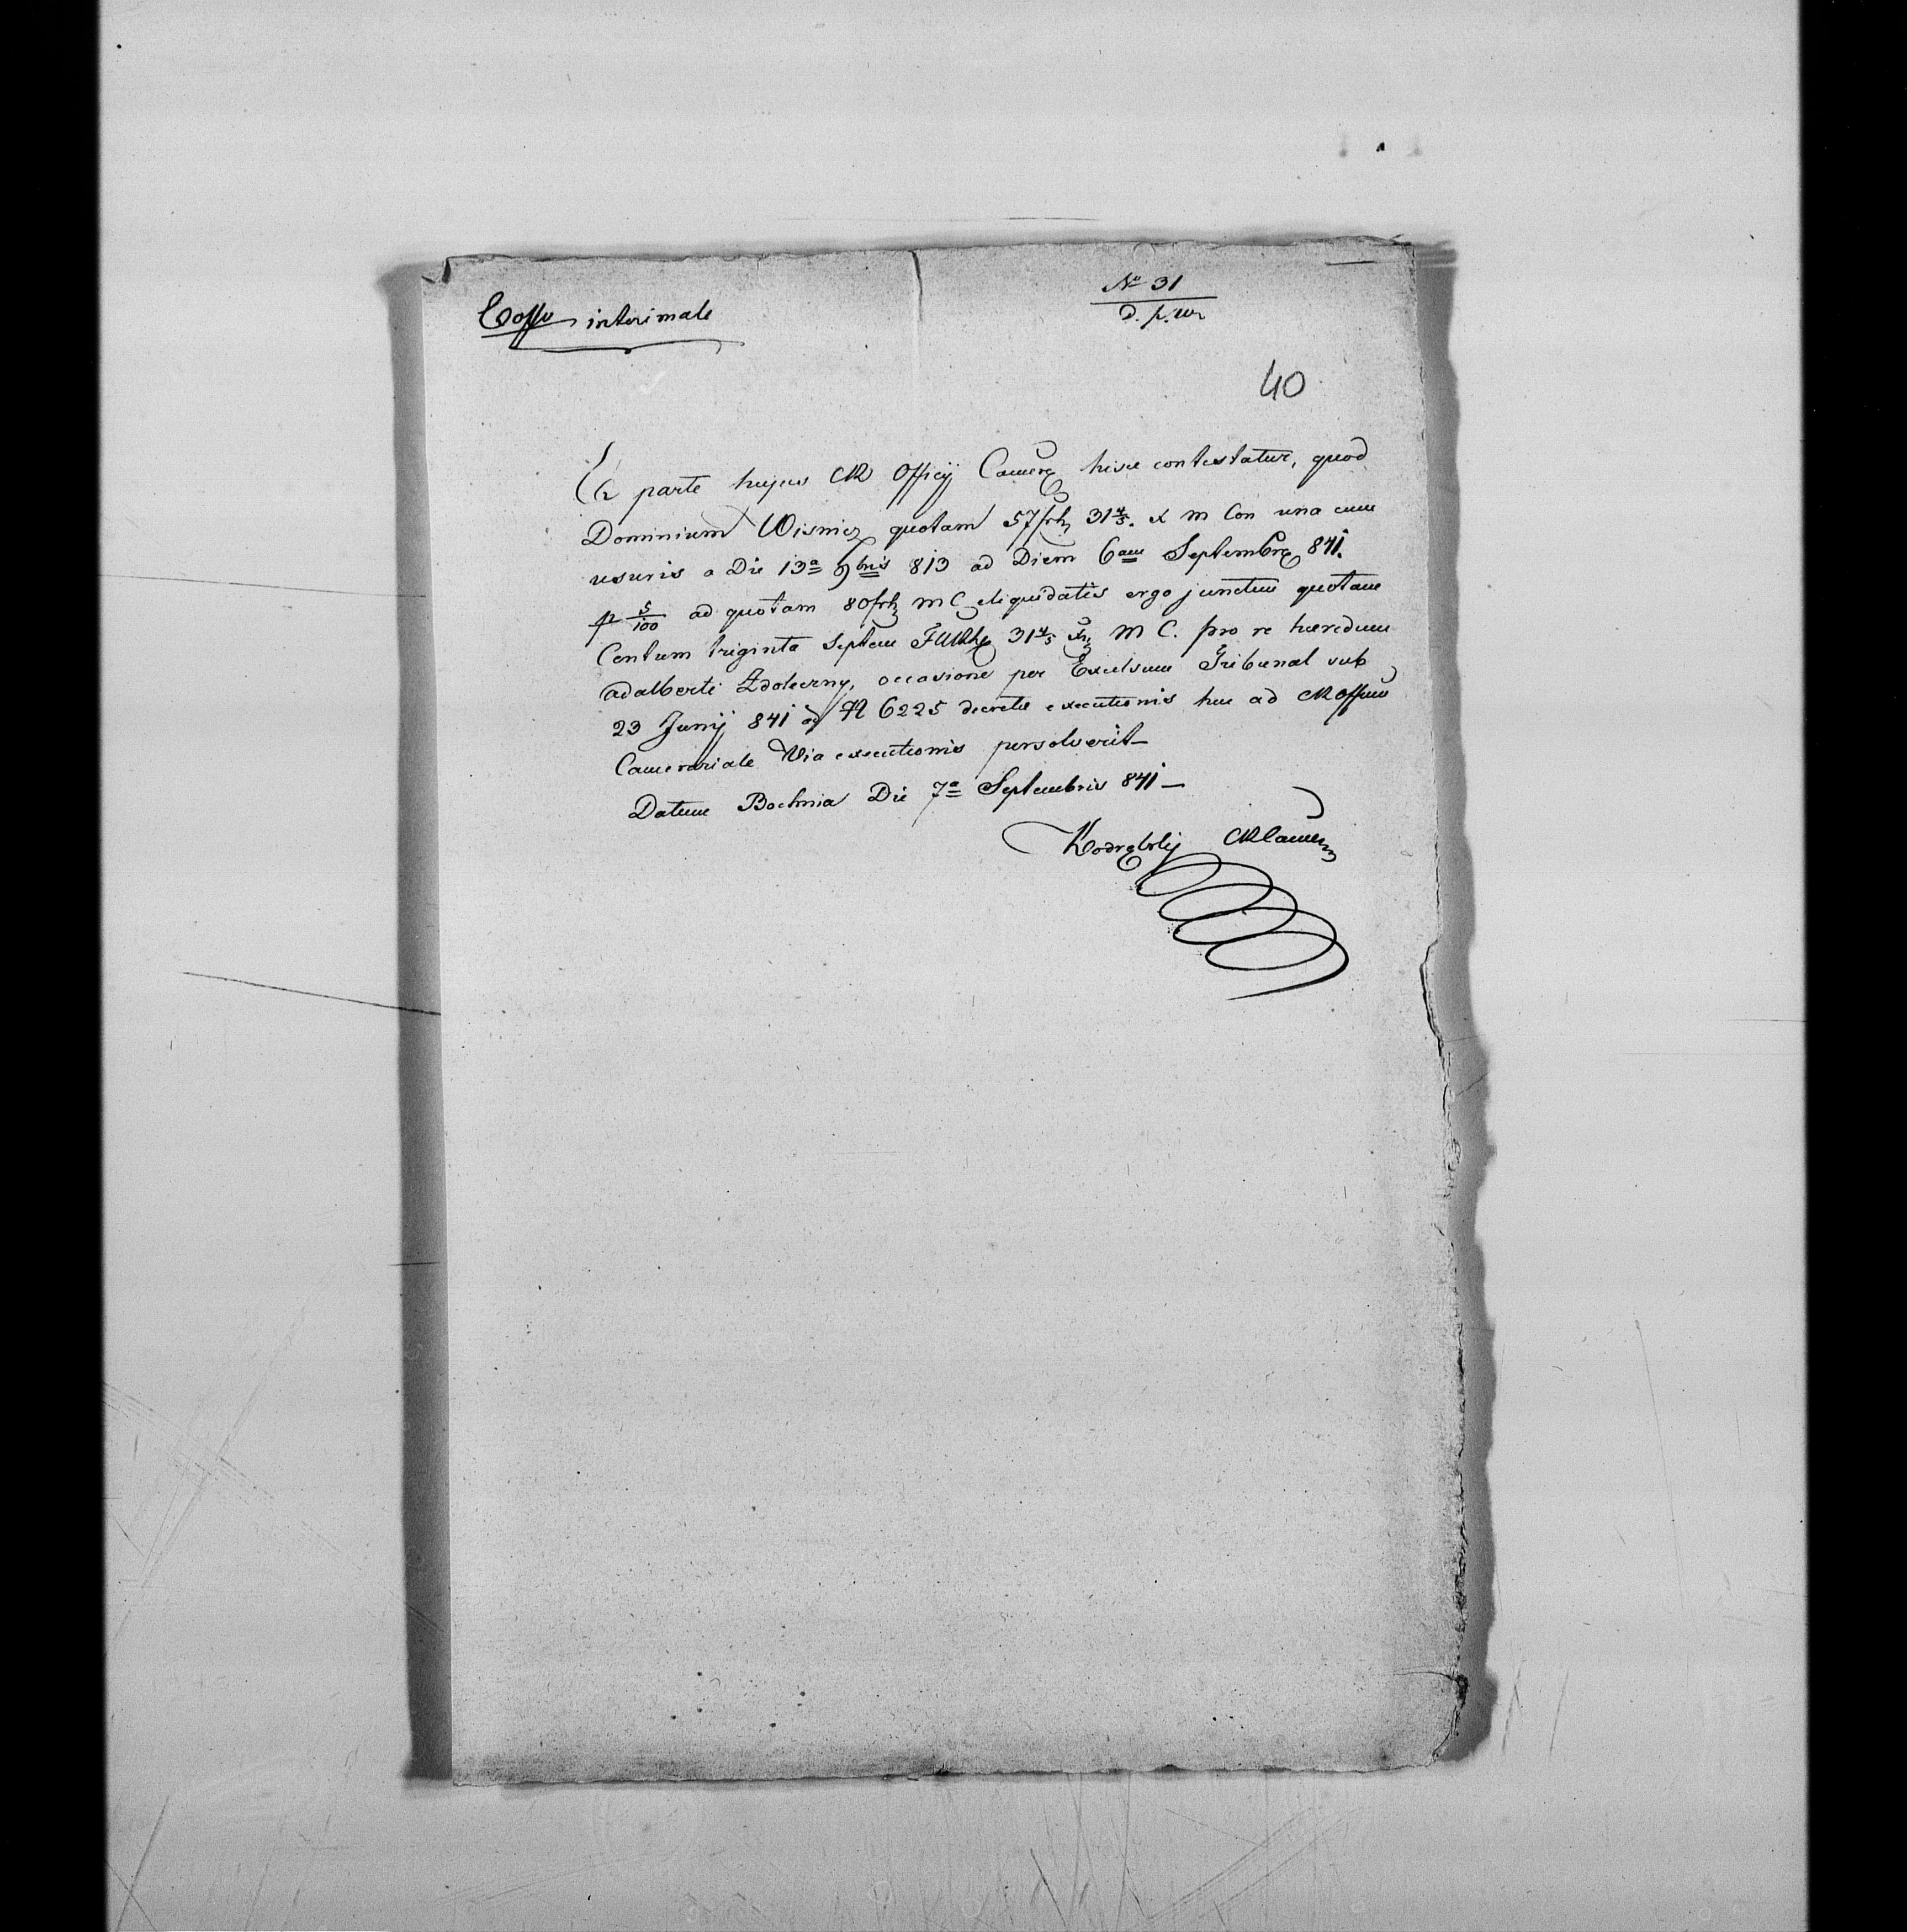 interimale
No 31
40
Ex parte hujus CR Officij Camerę hisce contestatur, quod
Dominium Wisnicz quotam 57 frh 31 4/5. x m Con una cum
usuris a Die 13a 9bris 813 ad Diem 6am Septembrę 841.
p 5/100 ad quotam 80 frh m C eliquidatis ergo junctim quotam
Centum triginta Septem 31 4/5 Xr M C. pro re hæredum
adalberti occasione per Excelsum Tribunal sub
23 Junij 841 ad N 6225 decretæ executionis huc ad CR offium
Camerariale Via executionis persolverit—
Datum Bochnia Die 7a Septembris 841—
CR Camer